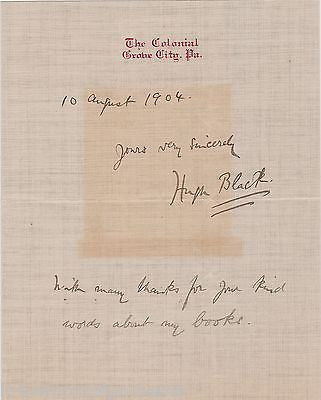 The Colonial
Grove City, Pa.
10 August 1904.
Yours very sincerely
Hugh Black.
With many thanks for your kind
words about my books.